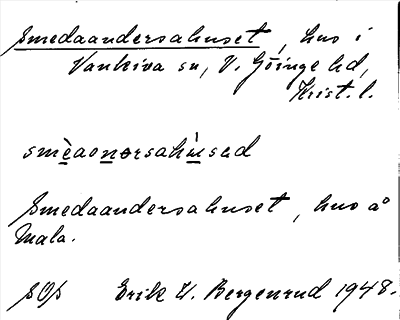 Smedaandersahuset, hus i
Vankiva sn, V. Göinge hd,
Krist. l.
smèaonərsahùsəd
Smedaandersahuset, hus å
Mala.
SOS Erik H. Bergenrud 1948.